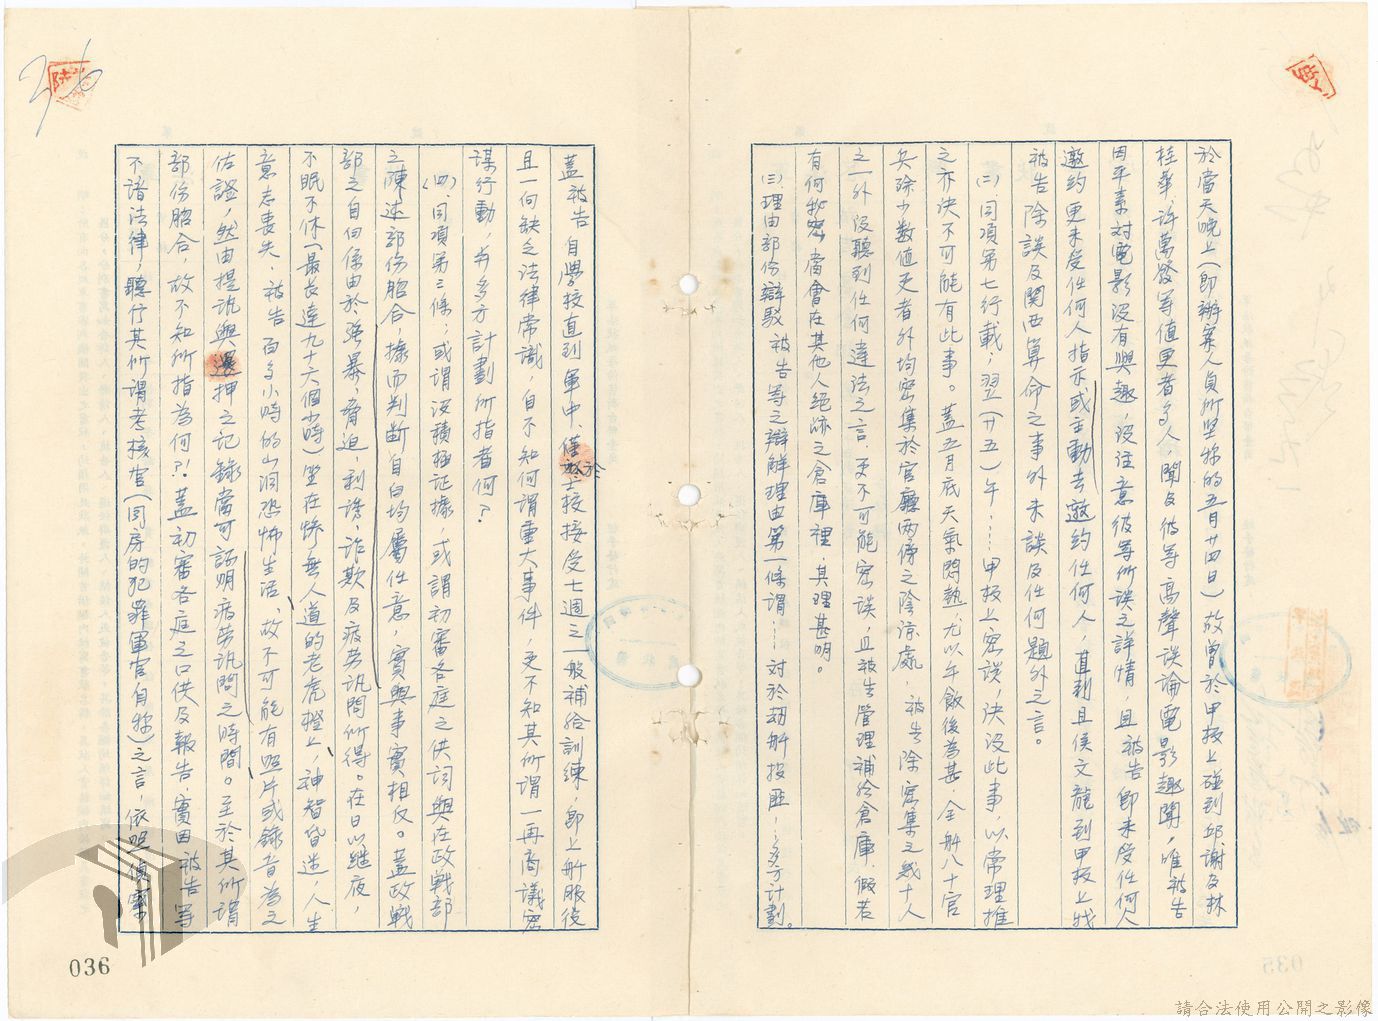 於當天晚上(即辦案人員所坚称的五月廿四日)故曾於甲板上碰到邱、謝及林
桂華、許萬發等值更者多人,聞及彼等高聲談論電影趣聞,唯被告
因平素對電影沒有興趣,沒注意彼等所談之詳情,且被告即未受任何人
邀約更未受任何人指示或主動去邀約任何人,直到且侯文龍到甲板上找
被告除談及關西算命之事外未談及任何題外之言。
(二)同項第七行載;翌(廿五)午……甲板上密談,決沒此事,以常理推
之亦決不可能有此事。蓋五月底天氣悶熱,尤以午飯後為甚,全舺八十官
兵除少數值更者外均密集於官廳兩傍之陰涼處,被告除密集之幾十人
之一外沒聽到任何違法之言,更不可能密談,且被告管理補給倉庫,假若
有何秘密當會在其他人絕跡之倉庫裡,其理甚明。
(三)理由部份辯駁被告等之辯解理由第一條謂……对於刧舺投匪……多方計劃。
蓋被告自學校直到軍中,僅於士校接受七週之一般補給訓練,即上舺服役
且一向缺乏法律常識,自不知何謂重大事件,更不知其所謂一再商議密
謀行動,於多方計劃所指者何?
(四)同項第三條;或謂沒積極証據,或謂初審各庭之供詞與在政戰部
之陳述部份脗合,據而判斷自白均屬任意,實與事實相反。蓋政戰
部之自白係由於強暴,脅迫,利誘,詐欺及疲劳訊問所得。在日以継夜,
不眠不休(最長達九十六個小時)坐在慘無人道的老虎橙上,神智昏迷,人生
意志丧失,被告百多小時的山洞恐怖生活,故不可能有照片或錄音為之
佐證,然由提訊與還押之记錄當可証明疲劳訊問之時間。至於其所謂
部份脗合,故不知所指為何?!蓋初審各庭之口供及報告,實因被告等
不諳法律,聽行其所謂考核官(同房的犯罪軍官自称)之言,依照偵案
036
請合法使用公開之影像